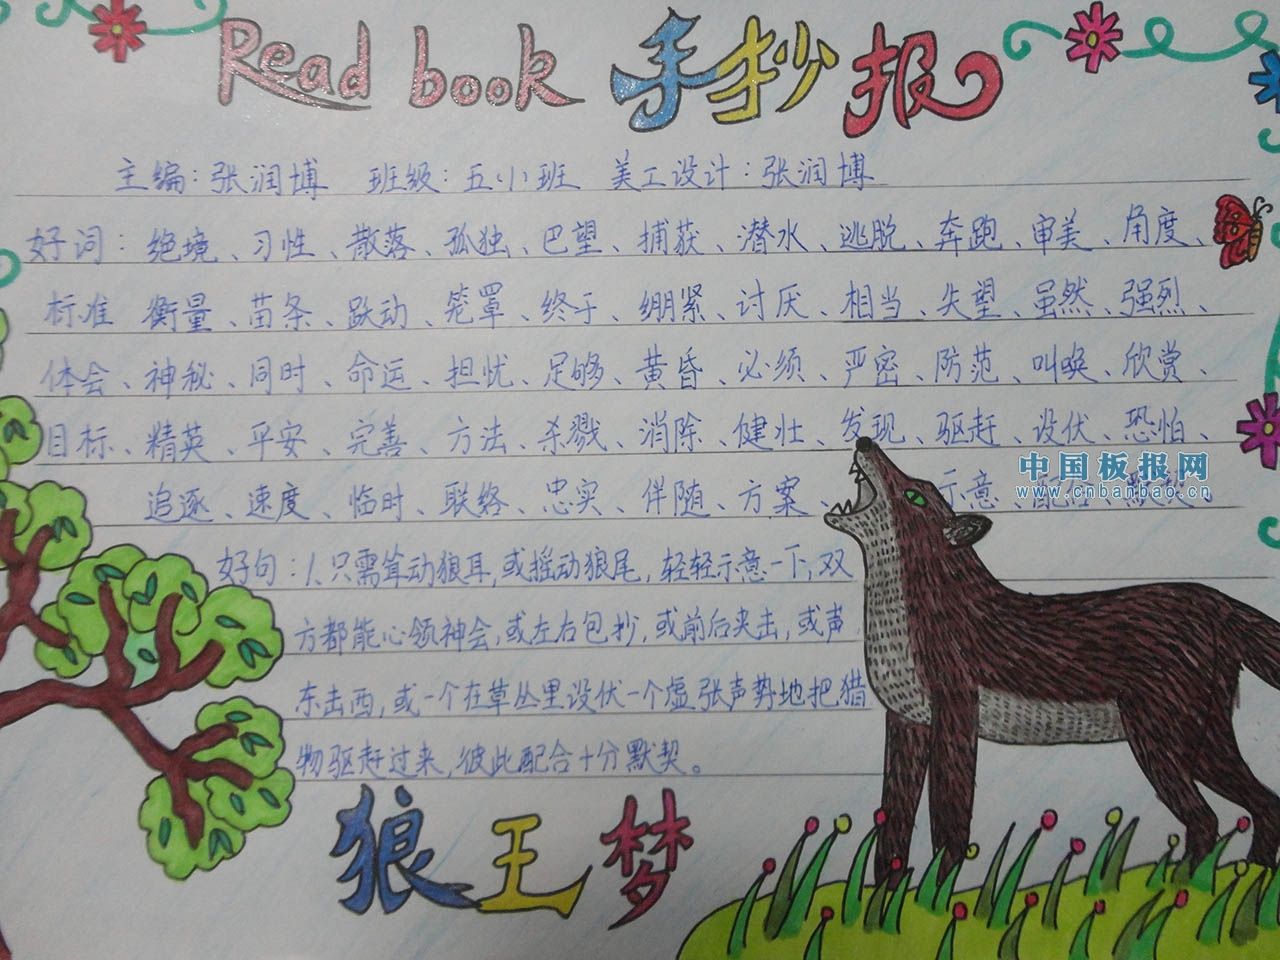 Read book 手抄报
主编：张润博 班级：五(小)班 美工设计：张润博
好词：绝境、习性、散落、孤独、巴望、捕获、潜水、逃脱、奔跑、审美、角度、
标准 衡量、苗条、跃动、笼罩、终于、绷紧、讨厌、相当、失望、虽然、强烈、
体会、神秘、同时、命运、担忧、足够、黄昏、必须、严密、防范、叫唤、欣赏、
目标、精英、平安、完善、方法、杀戮、消除、健壮、发现、驱赶、设伏、恐怕、
追逐、速度、临时、联络、忠实、伴随、方案、 示意、配合、默契、
中国板报网
www.cnbanbao.cn
好句：1、只需耸动狼耳，或摇动狼尾，轻轻示意一下，双
方都能心领神会，或左右包抄，或前后夹击，或声
东击西，或一个在草丛里设伏一个虚张声势地把猎
物驱赶过来，彼此配合十分默契。
狼王梦